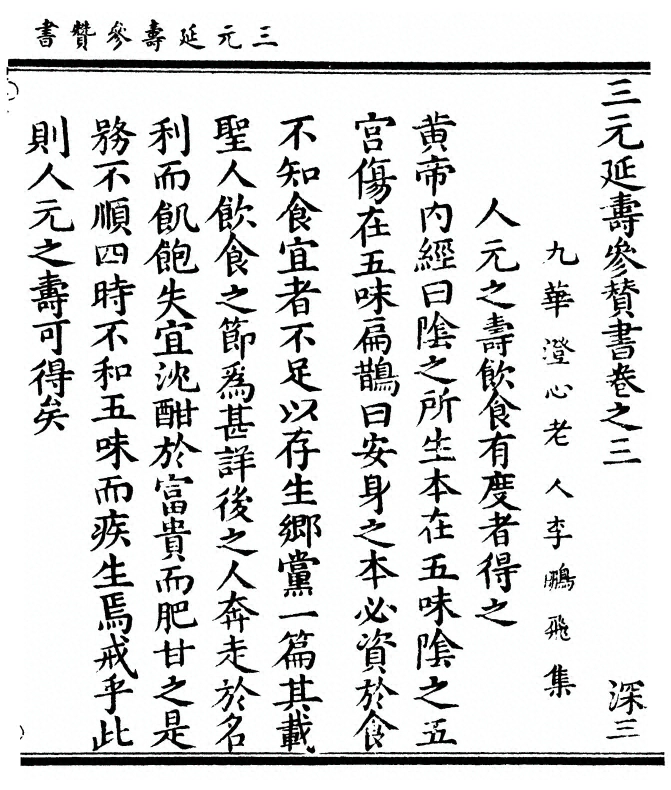 三元延壽參贊書
三元延壽參贊書卷之三
深三
九華澄心老人李鵬飛集
人元之壽飲食有度者得之
黃帝內經曰陰之所生本在五味陰之五
宮傷在五味扁鵲曰安身之本必資於食
不知食宜者不足以存生鄉黨一篇其載
聖人飲食之節為甚詳後之人奔走於名
利而飢飽失宜沈酣於富貴而肥甘之是
務不順四時不和五味而疾生焉戒乎此
則人元之壽可得矣